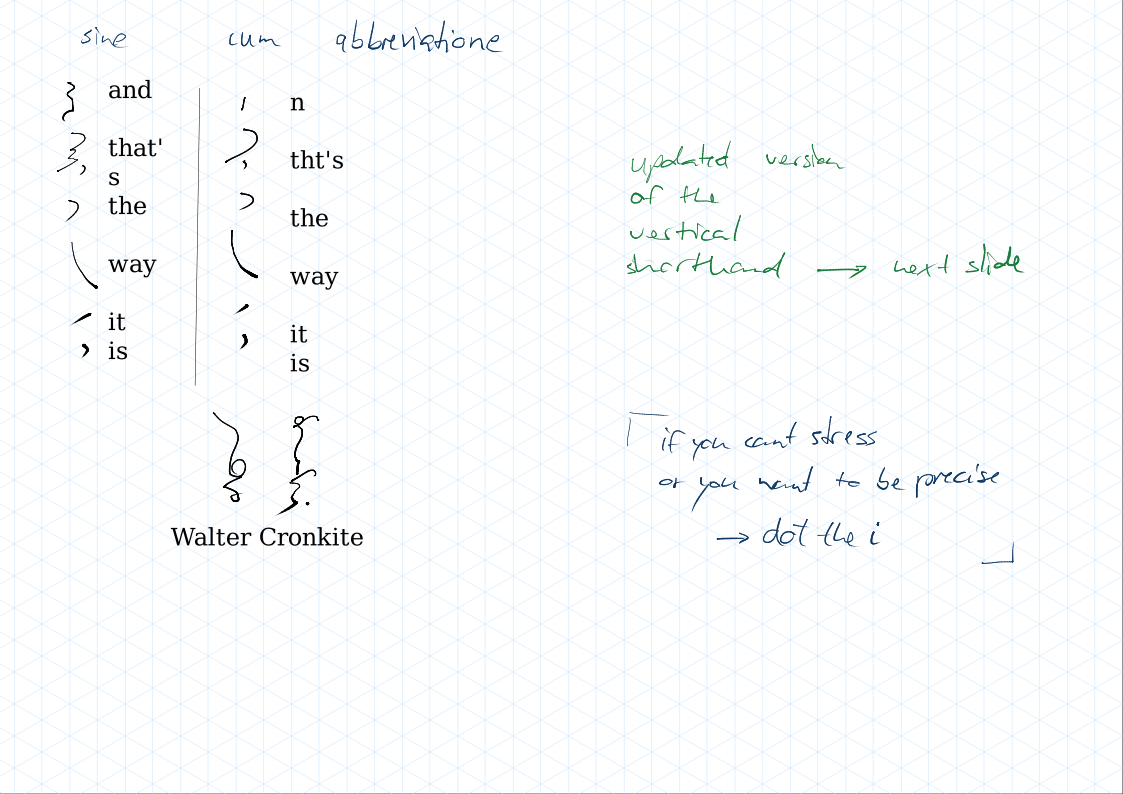 sine cum abbreviatione
and
that'
s
the
way
it
is
n
tht's
the
way
it
is
Walter Cronkite
updated version
of the
vertical
shorthand → next slide
if you cant stress
or you want to be precise
→ dot the i